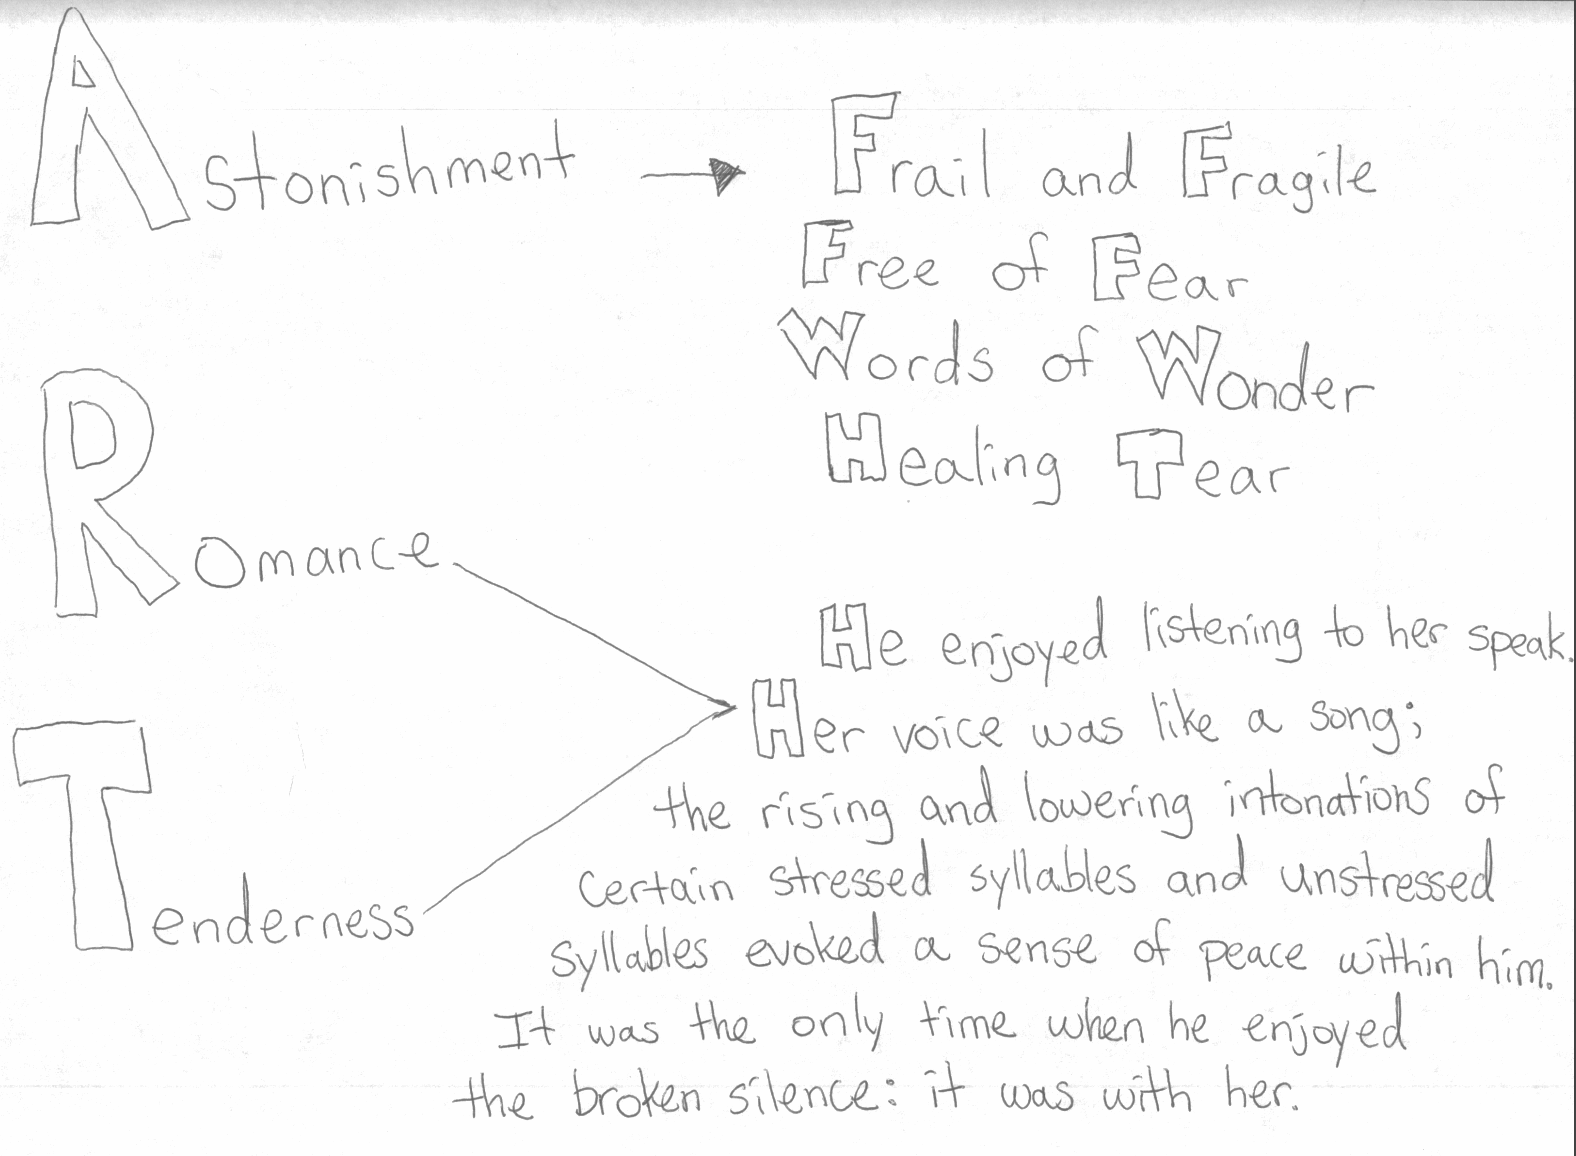 Astonishment → Frail and Fragile
Free of Fear
Words of Wonder
Healing Tear
Romance
He enjoyed listening to her speak.
Her voice was like a song;
the rising and lowering intonations of
certain stressed syllables and unstressed
Tenderness
syllables evoked a sense of peace within him.
It was the only time when he enjoyed
the broken silence: it was with her.